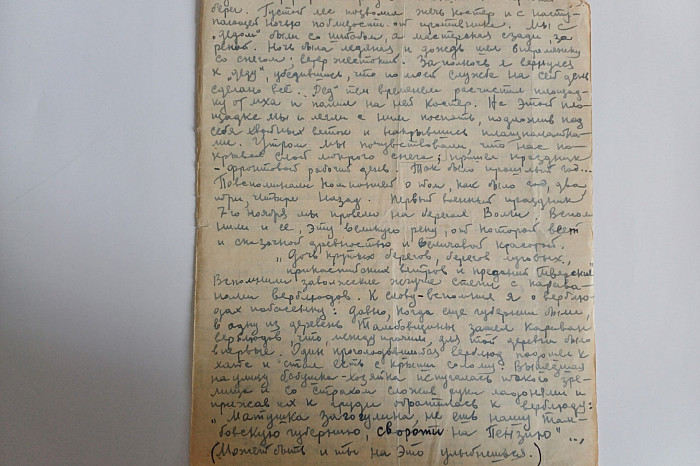 берег. Густой лес позволил жечь костер и с насту-
пающей ночью поблизости от противника. Мы с
„дедом" были со штабом, а мастерская сзади, за
рекой. Ночь была ледяная и дождь шел вперемежку
со снегом; ветер жестокий. За полночь я вернулся
к „деду", убедившись, что по моей службе на сей день
сделано всё. „Дед" тем временем расчистил площад-
ку от мха и палил на ней костер. На этой пло-
щадке мы и легли с ним поспать, подложив под
себя хвойных веток и накрывшись плащпалатка-
ми. Утром мы почувствовали, что нас по-
крывает слой мокрого снега; пришел праздник
- фронтовой рабочий день. Так было прошлый год...
Повспоминали компанией о том, как было год, два
три, четыре назад. Первый военный праздник
7го ноября мы провели на берегах Волги. Вспом
нили и её, эту великую реку, от которой веет
и сказочной древностью и величавой красотой.
„Дочь крутых берегов, берегов луговых,
прикаспийских ветров и преданий Тверских"
Вспомнили заволжские жгучие степи с карава-
нами верблюдов. К слову-вспомнил я о верблю-
дах побасенку: давно, когда еще губернии были,
в одну из деревень Тамбовщины зашел караван
верблюдов, что, между прочим, для той деревни было
впервые. Один проголодовшийся верблюд подошел к
хате и стал есть с крыши солому. Вышедшая
на улицу бабушка-хозяйка испугалась такого зре-
лища и со страхом сложив руки ладонями и
прижав их к груди обратилась к верблюду:
„Матушка Загогулина не ешь нашу Там-
бовскую губернию, своротти на Пензию"...,
(Может быть и ты на это улыбнешься.)